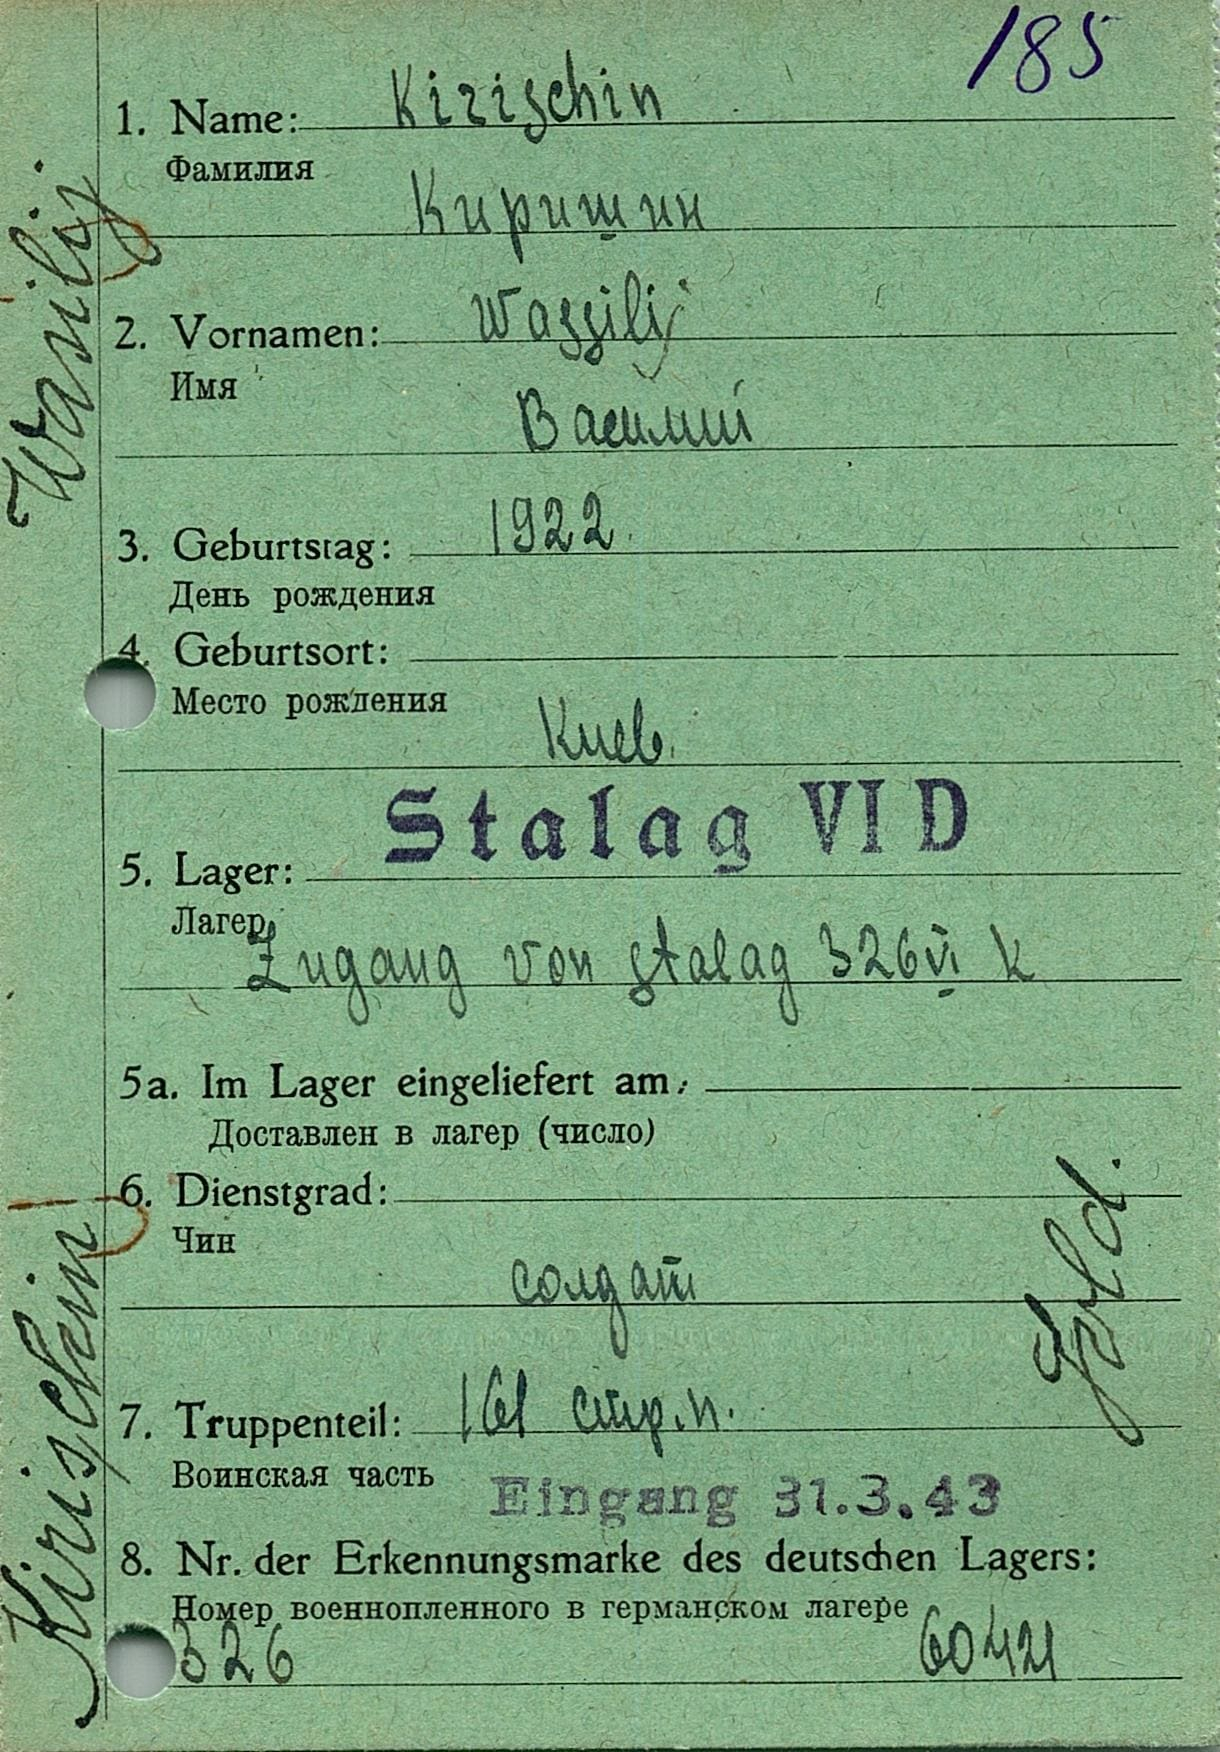 185
1. Name: Kirischin
Фамилия
Киришин
2. Vornamen: Wassilij
Имя
Василий
3. Geburtstag: 1922
День рождения
4. Geburtsort:
Место рождения
Киев.
Stalag VI D
5. Lager:
Лагер
Zugang von Stalag 326 VI K
5a. Im Lager eingeliefert am:
Доставлен в лагер (число)
6. Dienstgrad:
Чин
солдат
7. Truppenteil: 161 стр.п.
Воинская часть
Eingang 31.3.43
8. Nr. der Erkennungsmarke des deutschen Lagers:
Номер военнопленного в германском лагере
326 60421
Kirischin
Wasilij